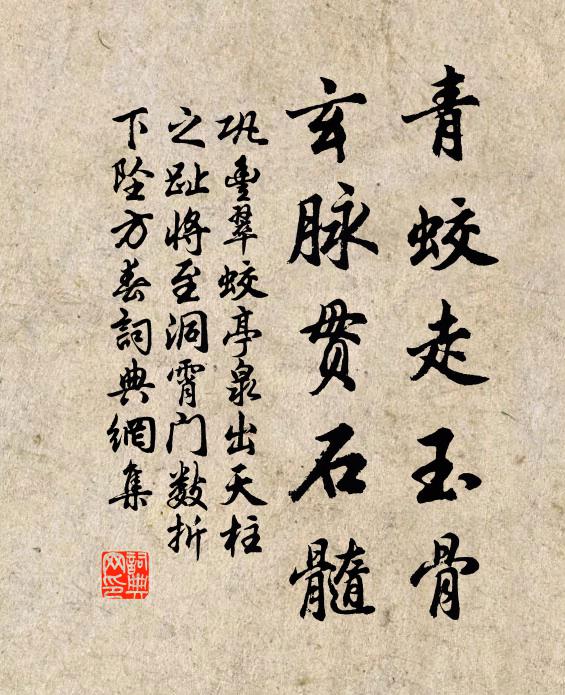 青蛟走玉骨
玄脉贯石髓
巩豊翠蛟亭泉出天柱
之趾将至洞霄门数折
下坠方春詞典網集
詞典网印